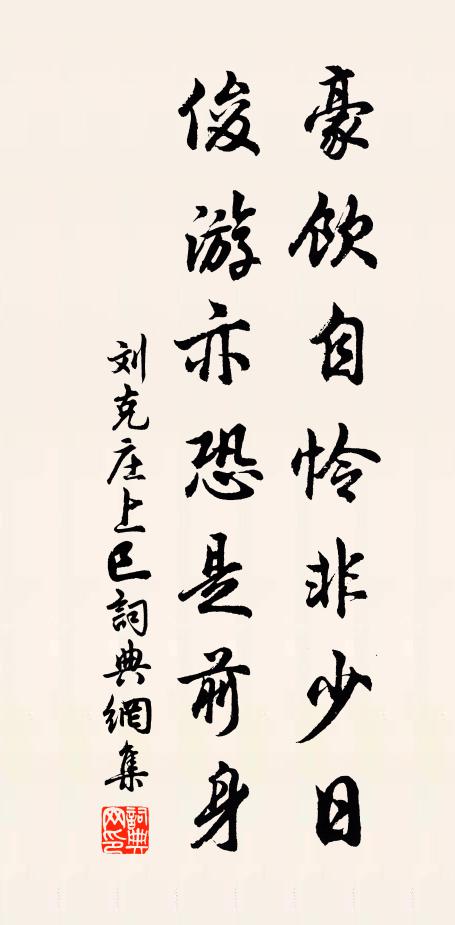 豪饮自怜非少日
俊游亦恐是前身
刘克庄上巳詞典網集
詞典网印